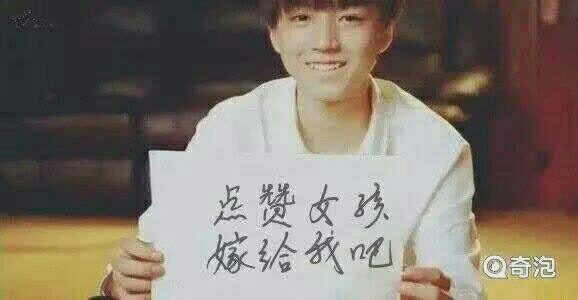 点赞女孩
嫁给我吧
奇泡